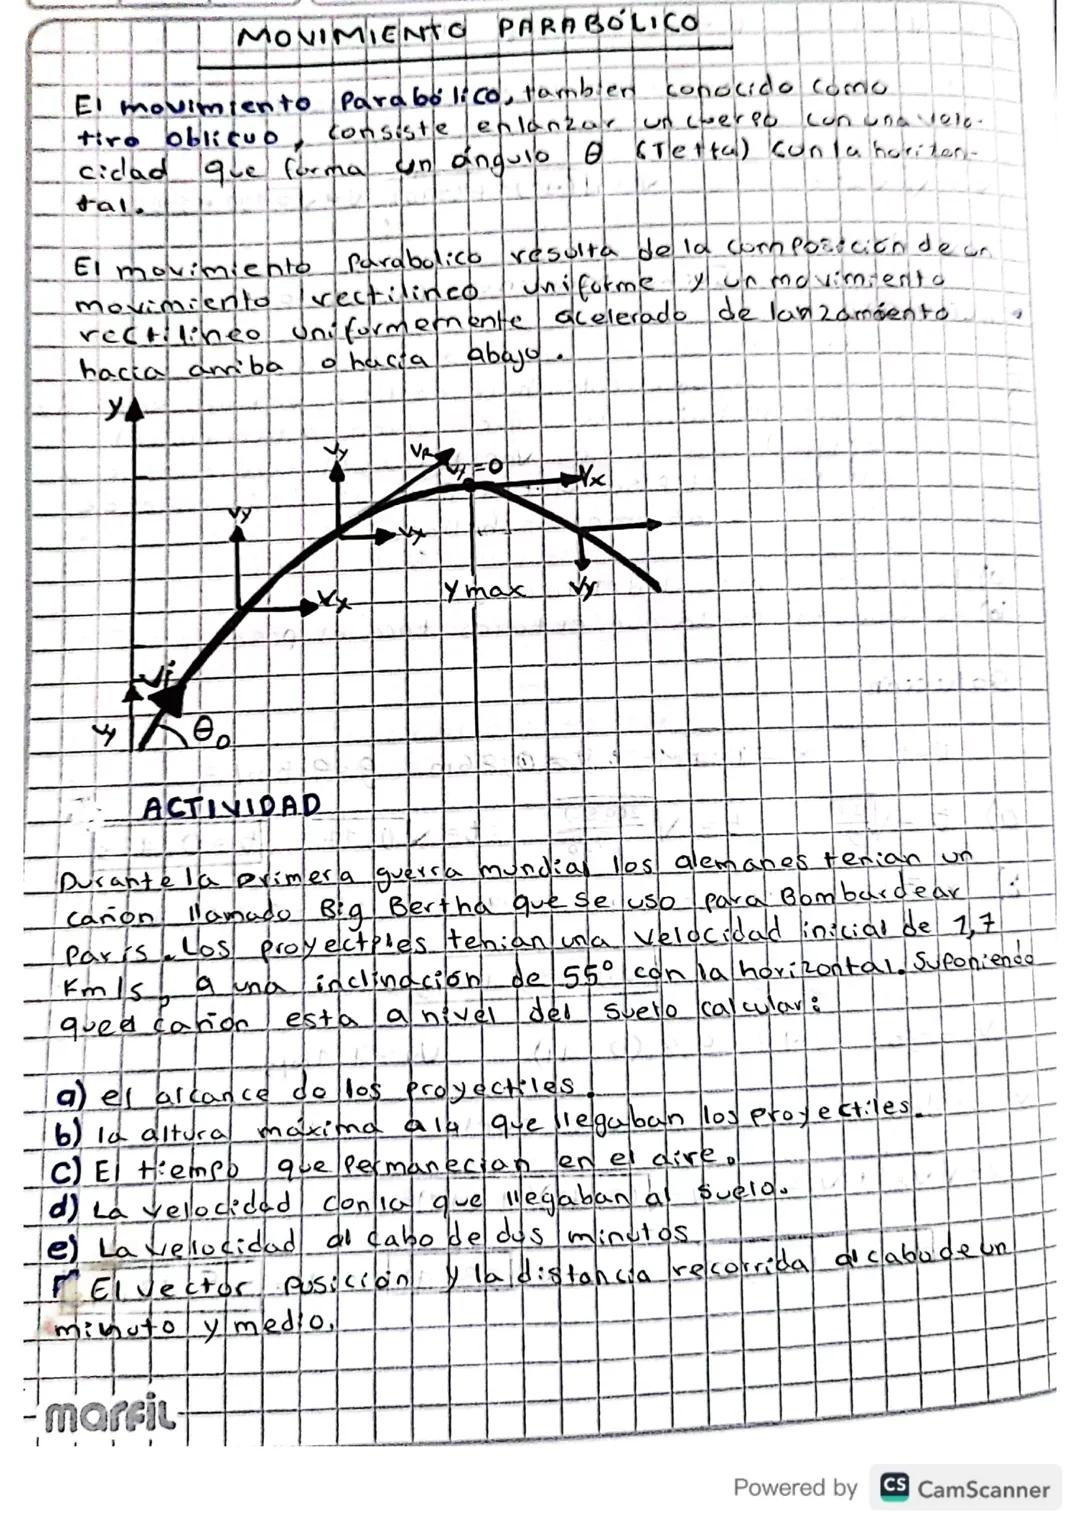 MOVIMIENTO PARABÓLICO
El movimiento Parabólico, tambien conocido como
tiro oblicuo, consiste en lanzar un cuerpo con una velo-
cidad que forma un ángulo θ (Tetta) con la horizon-
tal.
El movimiento Parabolico resulta de la composición de un
movimiento rectilineo uniforme y un movimiento
rectilineo uniformemente acelerado de lanzamiento
hacia arriba o hacia abajo.
y
Vy VR Vy=0 Vx
Vy Vx
Vx Ymax Vy
Vi
Vy θo
ACTIVIDAD
Durante la primera guerra mundial los alemanes tenian un
cañon llamado Big Bertha que se uso para Bombardear
Paris. Los proyectiles tenian una velocidad inicial de 1,7
Km/s, a una inclinación de 55° con la horizontal. Suponiendo
que el cañon esta a nivel del suelo calcular:
a) el alcance de los proyectiles.
b) la altura máxima a la que llegaban los proyectiles.
c) El tiempo que Permanecian en el aire.
d) La velocidad con la que llegaban al suelo.
e) La velocidad al cabo de dos minutos
F El vector posición y la distancia recorrida al cabo de un
minuto y medio.
marfil
Powered by CS CamScanner